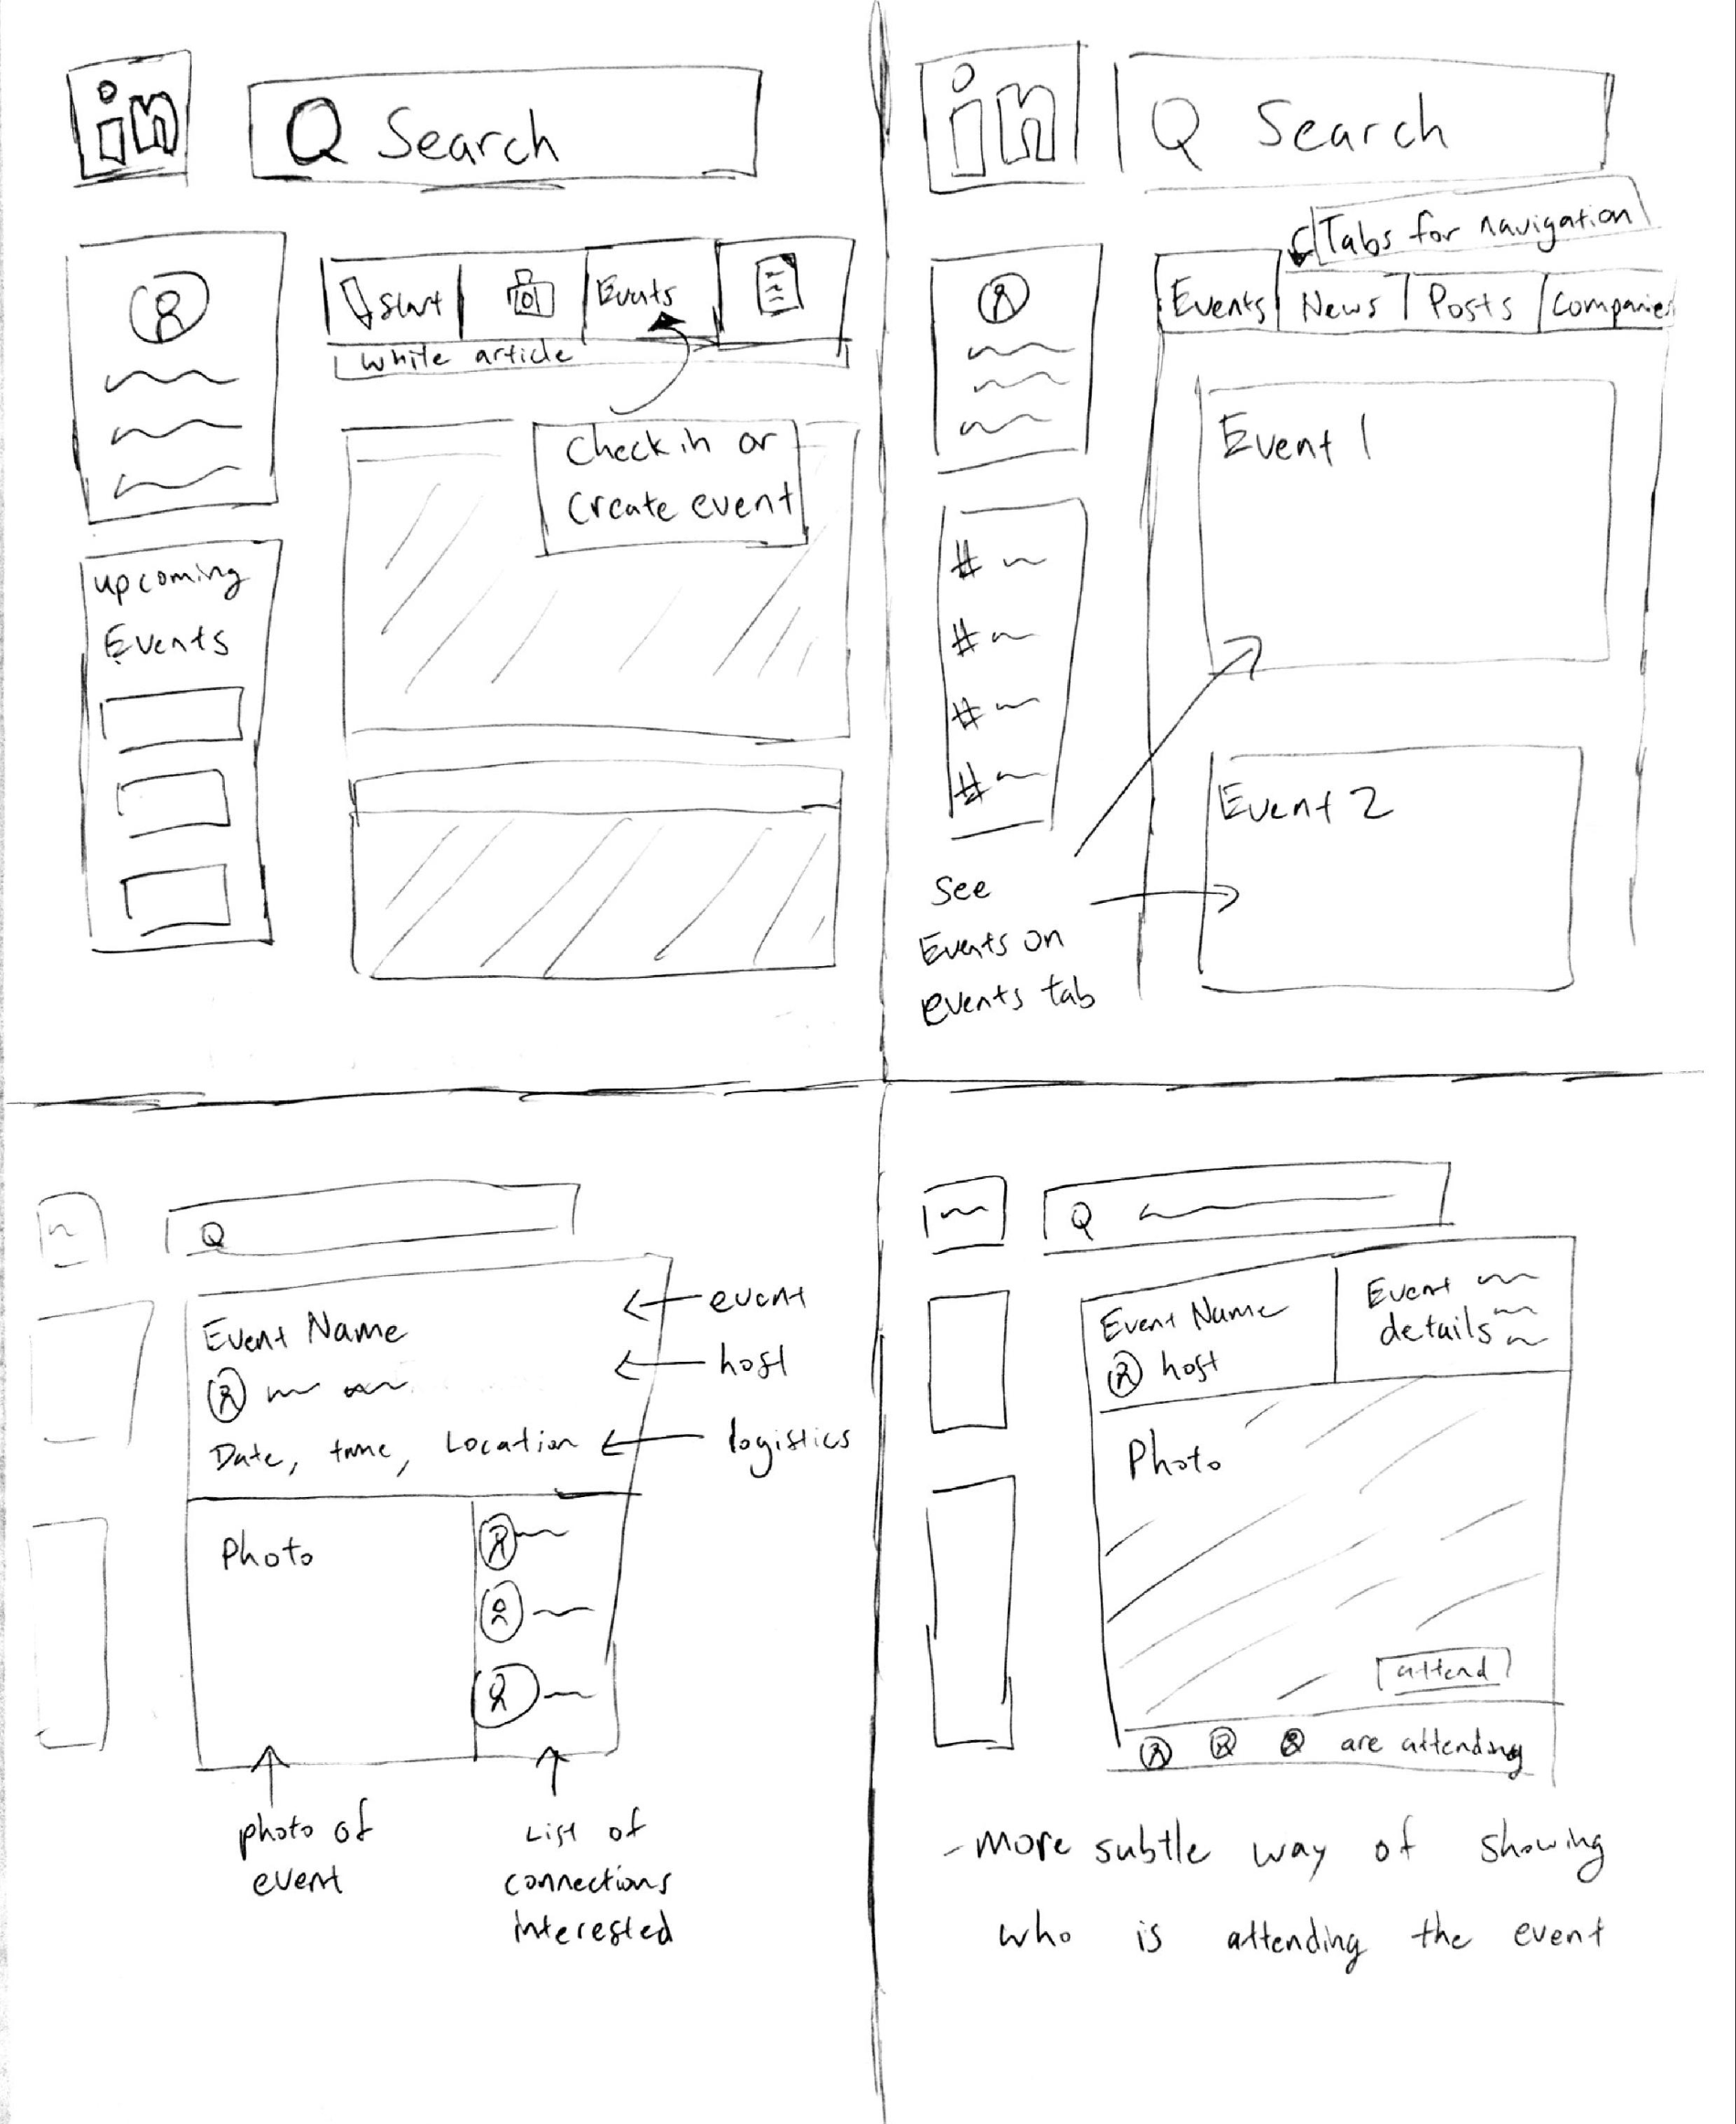 in
Search
Start
Events
white article
Check in or
Create event
upcoming
Events
in
Search
Tabs for navigation
Events
News
Posts
Companies
Event 1
#
#
#
#
Event 2
See
Events on
events tab
Event Name
Date, time, Location
event
host
logistics
Photo
photo of
event
List of
connections
interested
Event Name
host
Event
details
Photo
attend
are attending
- more subtle way of showing
who is attending the event